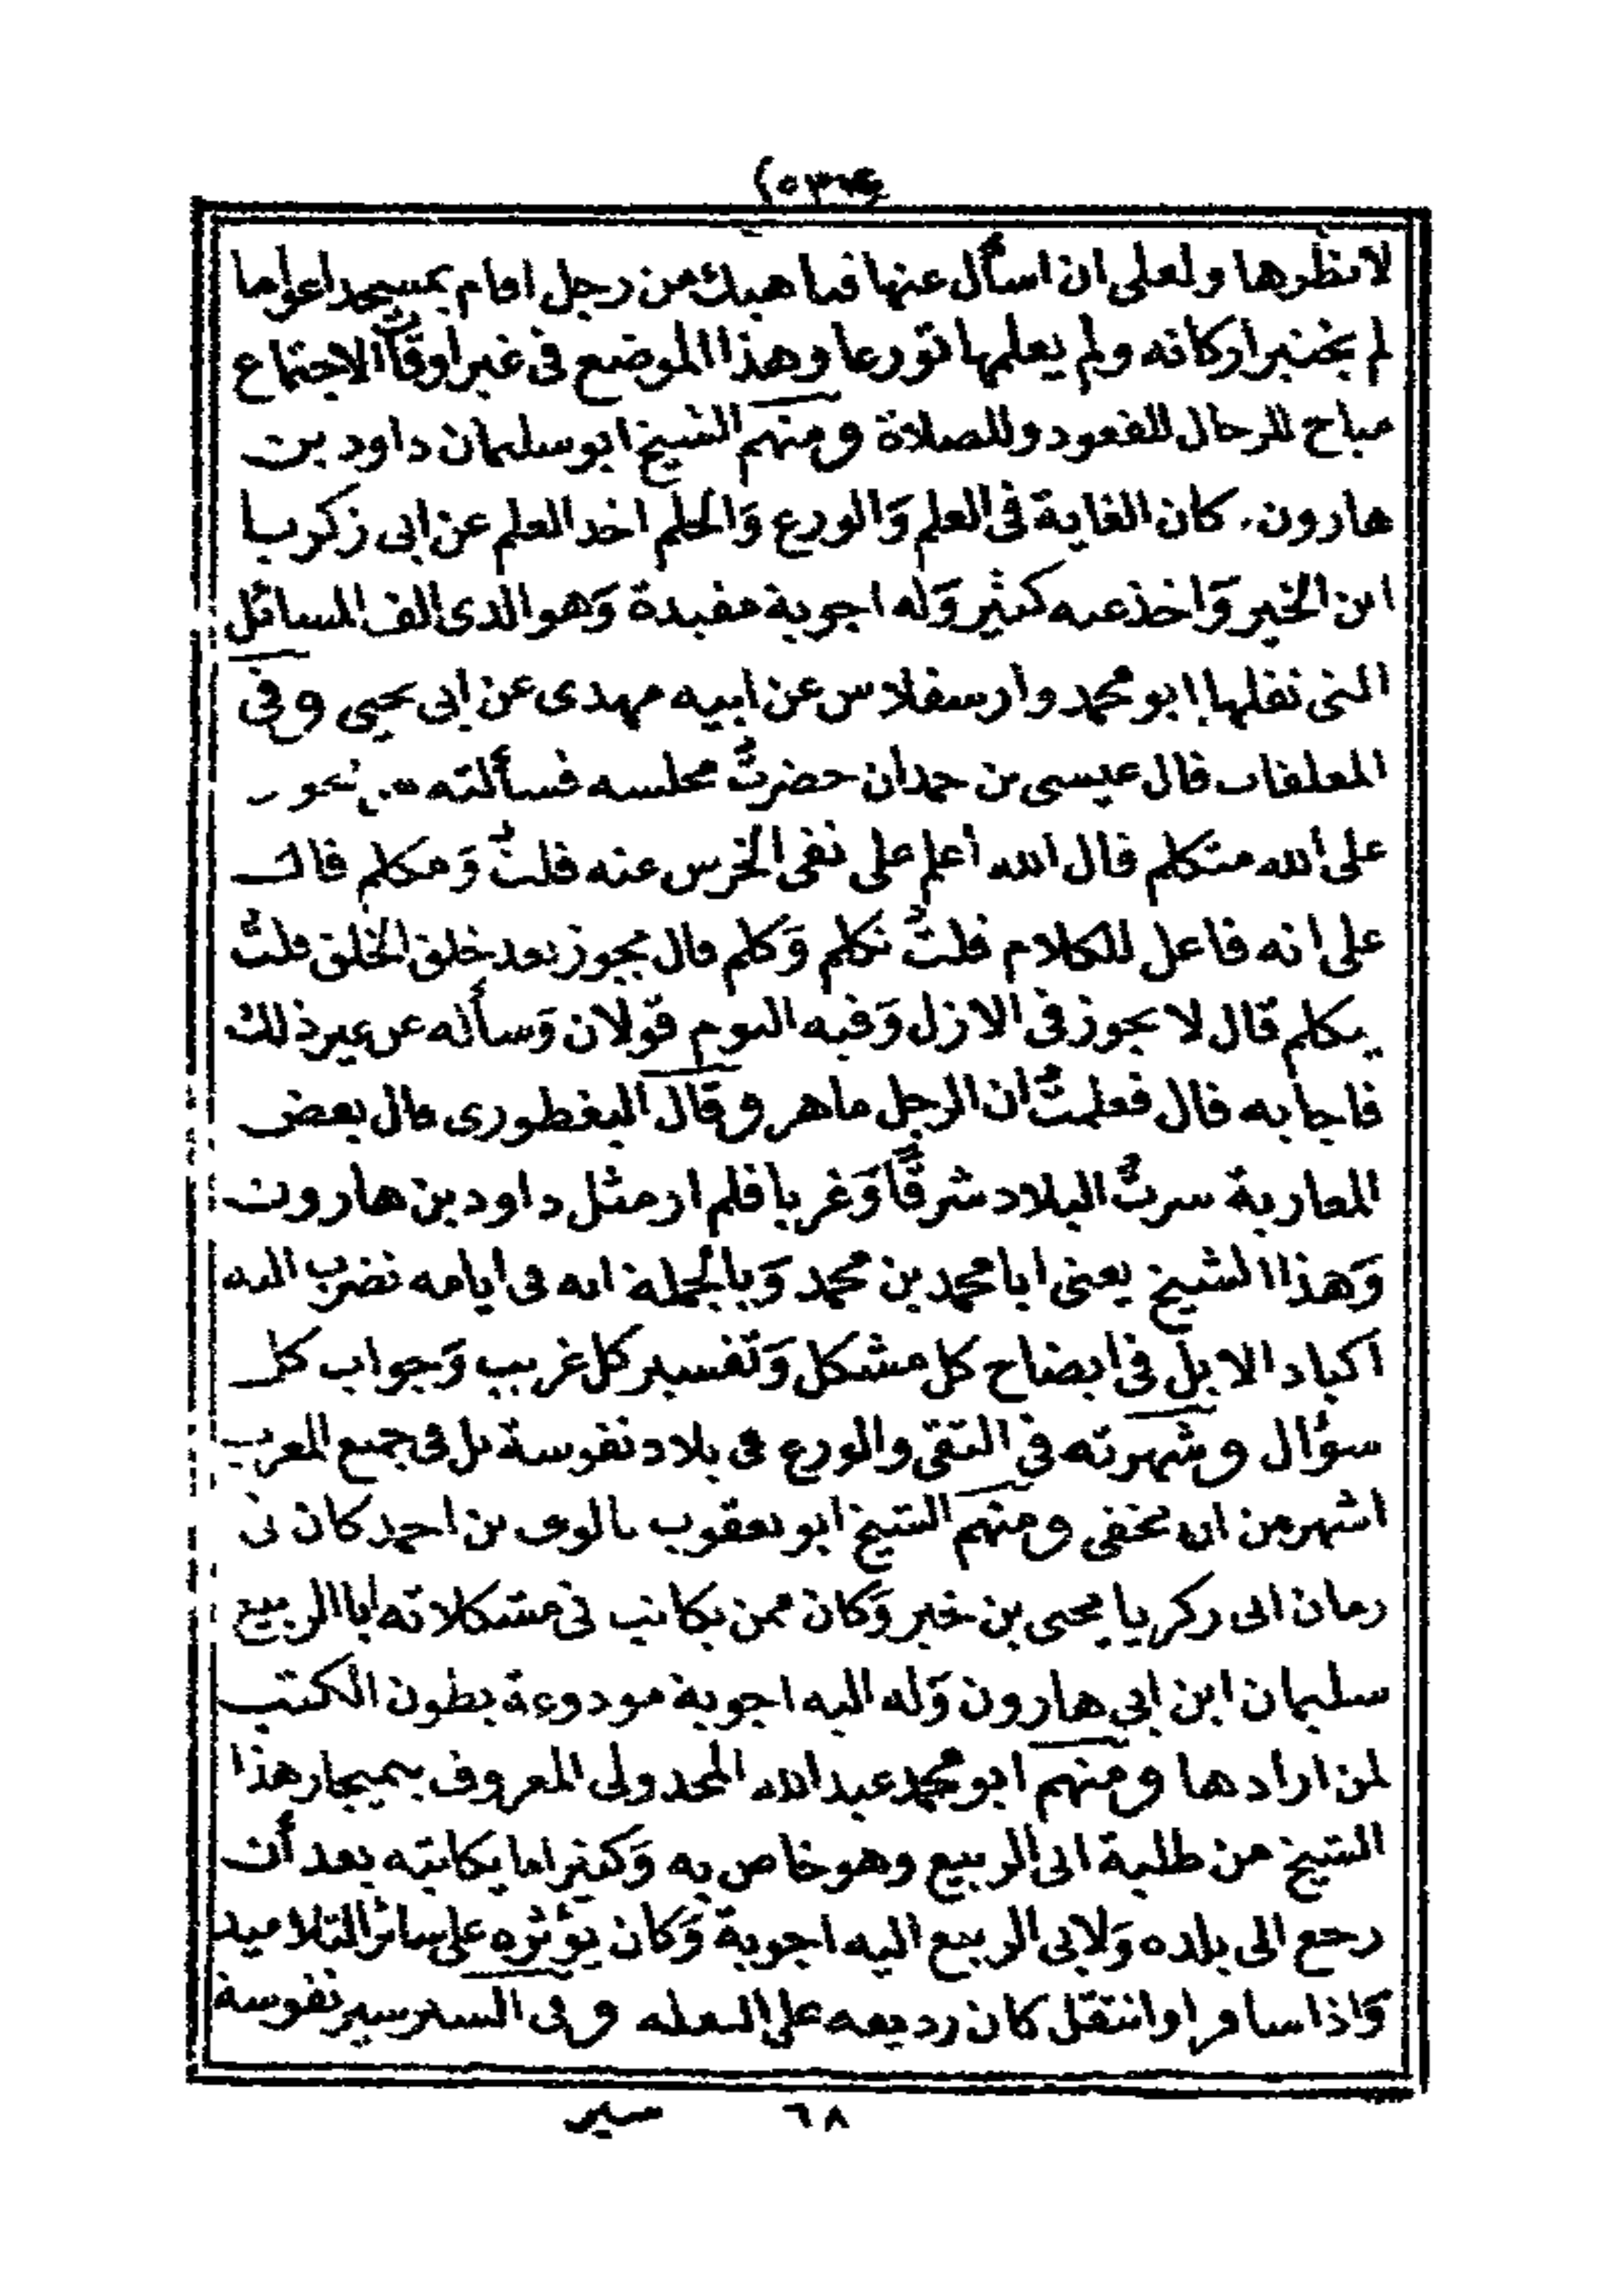 لانظرها ولعلى ان اسأل عنها فناهيك من رجل اقام بمسجد اعواما
لم يختبر اركانه ولم يعلمها تورعا وهذا الموضع فى غير اوقاًت الاجتماع
مباح للرجال للقعود وللصلاة ومنهم الشيخ ابو سليمان داود بن
هارون. كان الغاية فى العلم وَالورع وَالحلم اخذ العلم عن ابى زكريا
ابن الخير وَاخذ عنه كثير وَله اجوبة مفيدة وَهو الذى الف المسائل
التى نقلها ابو محمد وارسفلاس عن ابيه مهدى عن ابى يحيى وفى
المعلقات قال عيسى بن حمدان حضرتُ مجلسه فسألته نجوز
على الله متكلم قال الله اعلم على نفى الخرس عنه قلتُ وَمكلم قال
على انه فاعل للكلام قلتُ تكلم وَكلم قال يجوز بعد خلق الخلق قلتُ
يكلم قال لا يجوز فى الازل وَفيه اليوم قولان وَسأله عن غير ذلك
فاجابه قال فعلمتُ ان الرجل ماهر وقال البغطورى قال بعض
المغاربة سرتُ البلاد شرقًا وَغربا فلم ار مثل داود بن هارون
وَهذا الشيخ يعنى ابا محمد بن محمد وَبالجملة انه فى ايامه تضرب اليه
اكباد الابل فى ايضاح كل مشكل وَتفسير كل غريب وَجواب كل
سؤال وشهرته فى التقى والورع فى بلاد نفوسة بل فى جميع المغرب
اشهر من ان تخفى ومنهم الشيخ ابو يعقوب بن احمد كان فى
زمان ابى زكريا يحيى بن خير وَكان ممن يكاتب فى مشكلاته ابا الربيع
سليمان ابن ابى هارون وَله اليه اجوبة مودوعة بطون الكتب
لمن ارادها ومنهم ابو محمد عبد الله المجدولى المعروف هذا
الشيخ من طلبة ابى الربيع وهو خاص به وَكثيرا ما يكاتبه بعد أن
رجع الى بلده وَلابى الربيع اليه اجوبة وَكان يؤثره على سائر التلاميذ
وَاذا سافر او انتقل كان رديفه على البغلة وفى السير سير نفوسة
٦٨ سير